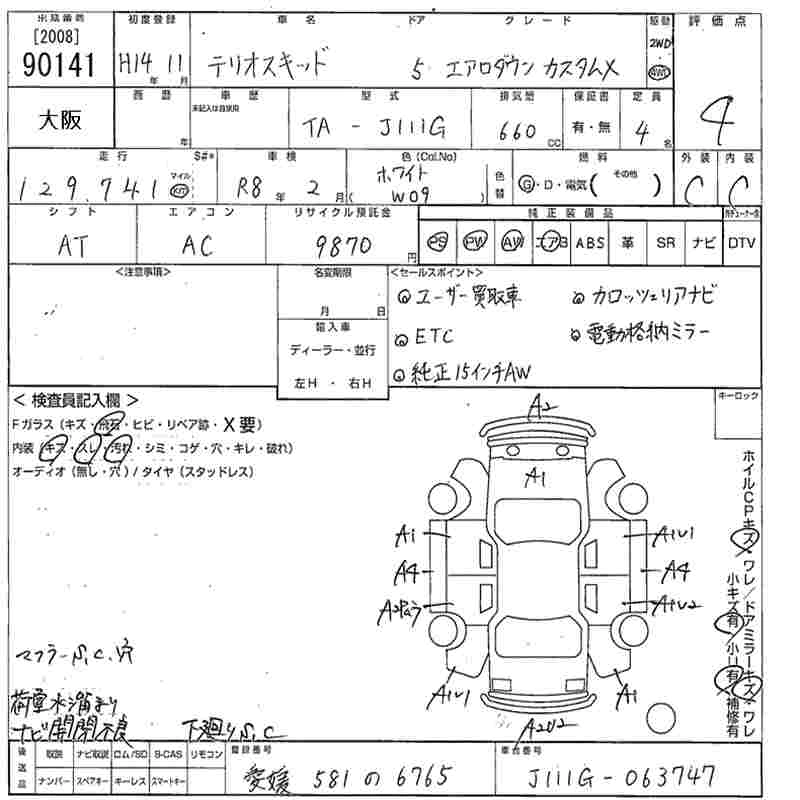 出品番号 初度登録 車名 ドア グレード 駆動 評価点
[2008]
90141 H14 11 テリオスキッド 5 エアロダウン カスタムX 2WD 4WD 4
年 月
大阪 西暦 車歴 型式 排気量 保証書 定員
未記入は自家用
年 TA - J111G 660 CC 有・無 4 名
走行 S#* 車検 色(Col.No) 色替 燃料 外装 内装
129,741 マイル km R8 年 2 月 ホワイト G・D・電気( その他 ) C C
( W09 )
シフト エアコン リサイクル預託金 純正装備品
AT AC 9870 円 PS PW AW エアB ABS 革 SR ナビ DTV
<注意事項> 名変期限 <セールスポイント>
月 日 ユーザー買取車 カロッツェリアナビ
輸入車 ETC 電動格納ミラー
ディーラー・並行
左H ・ 右H 純正15インチAW
< 検査員記入欄 > キーロック
Fガラス (キズ・飛石・ヒビ・リペア跡・X要)
内装 (キズ・スレ・汚れ・シミ・コゲ・穴・キレ・破れ)
オーディオ (無し・穴) / タイヤ (スタッドレス)
A2
A1
A1 A1U1
A4 A4
A2Pムラ A1U2
A1U1 A1
A2U2
ホイルCPキズ・ワレ/ドアミラーキズ・ワレ
小キズ有/小U有・補修有
マフラーS,C,穴
荷室水溜まり
ナビ開閉不良 下廻りS,C
後送品 取説 ナビ取説 ロム/SD B-CAS リモコン 登録番号 車台番号
ナンバー スペアキー キーレス スマートキー 愛媛 581 の 6765 J111G-063747